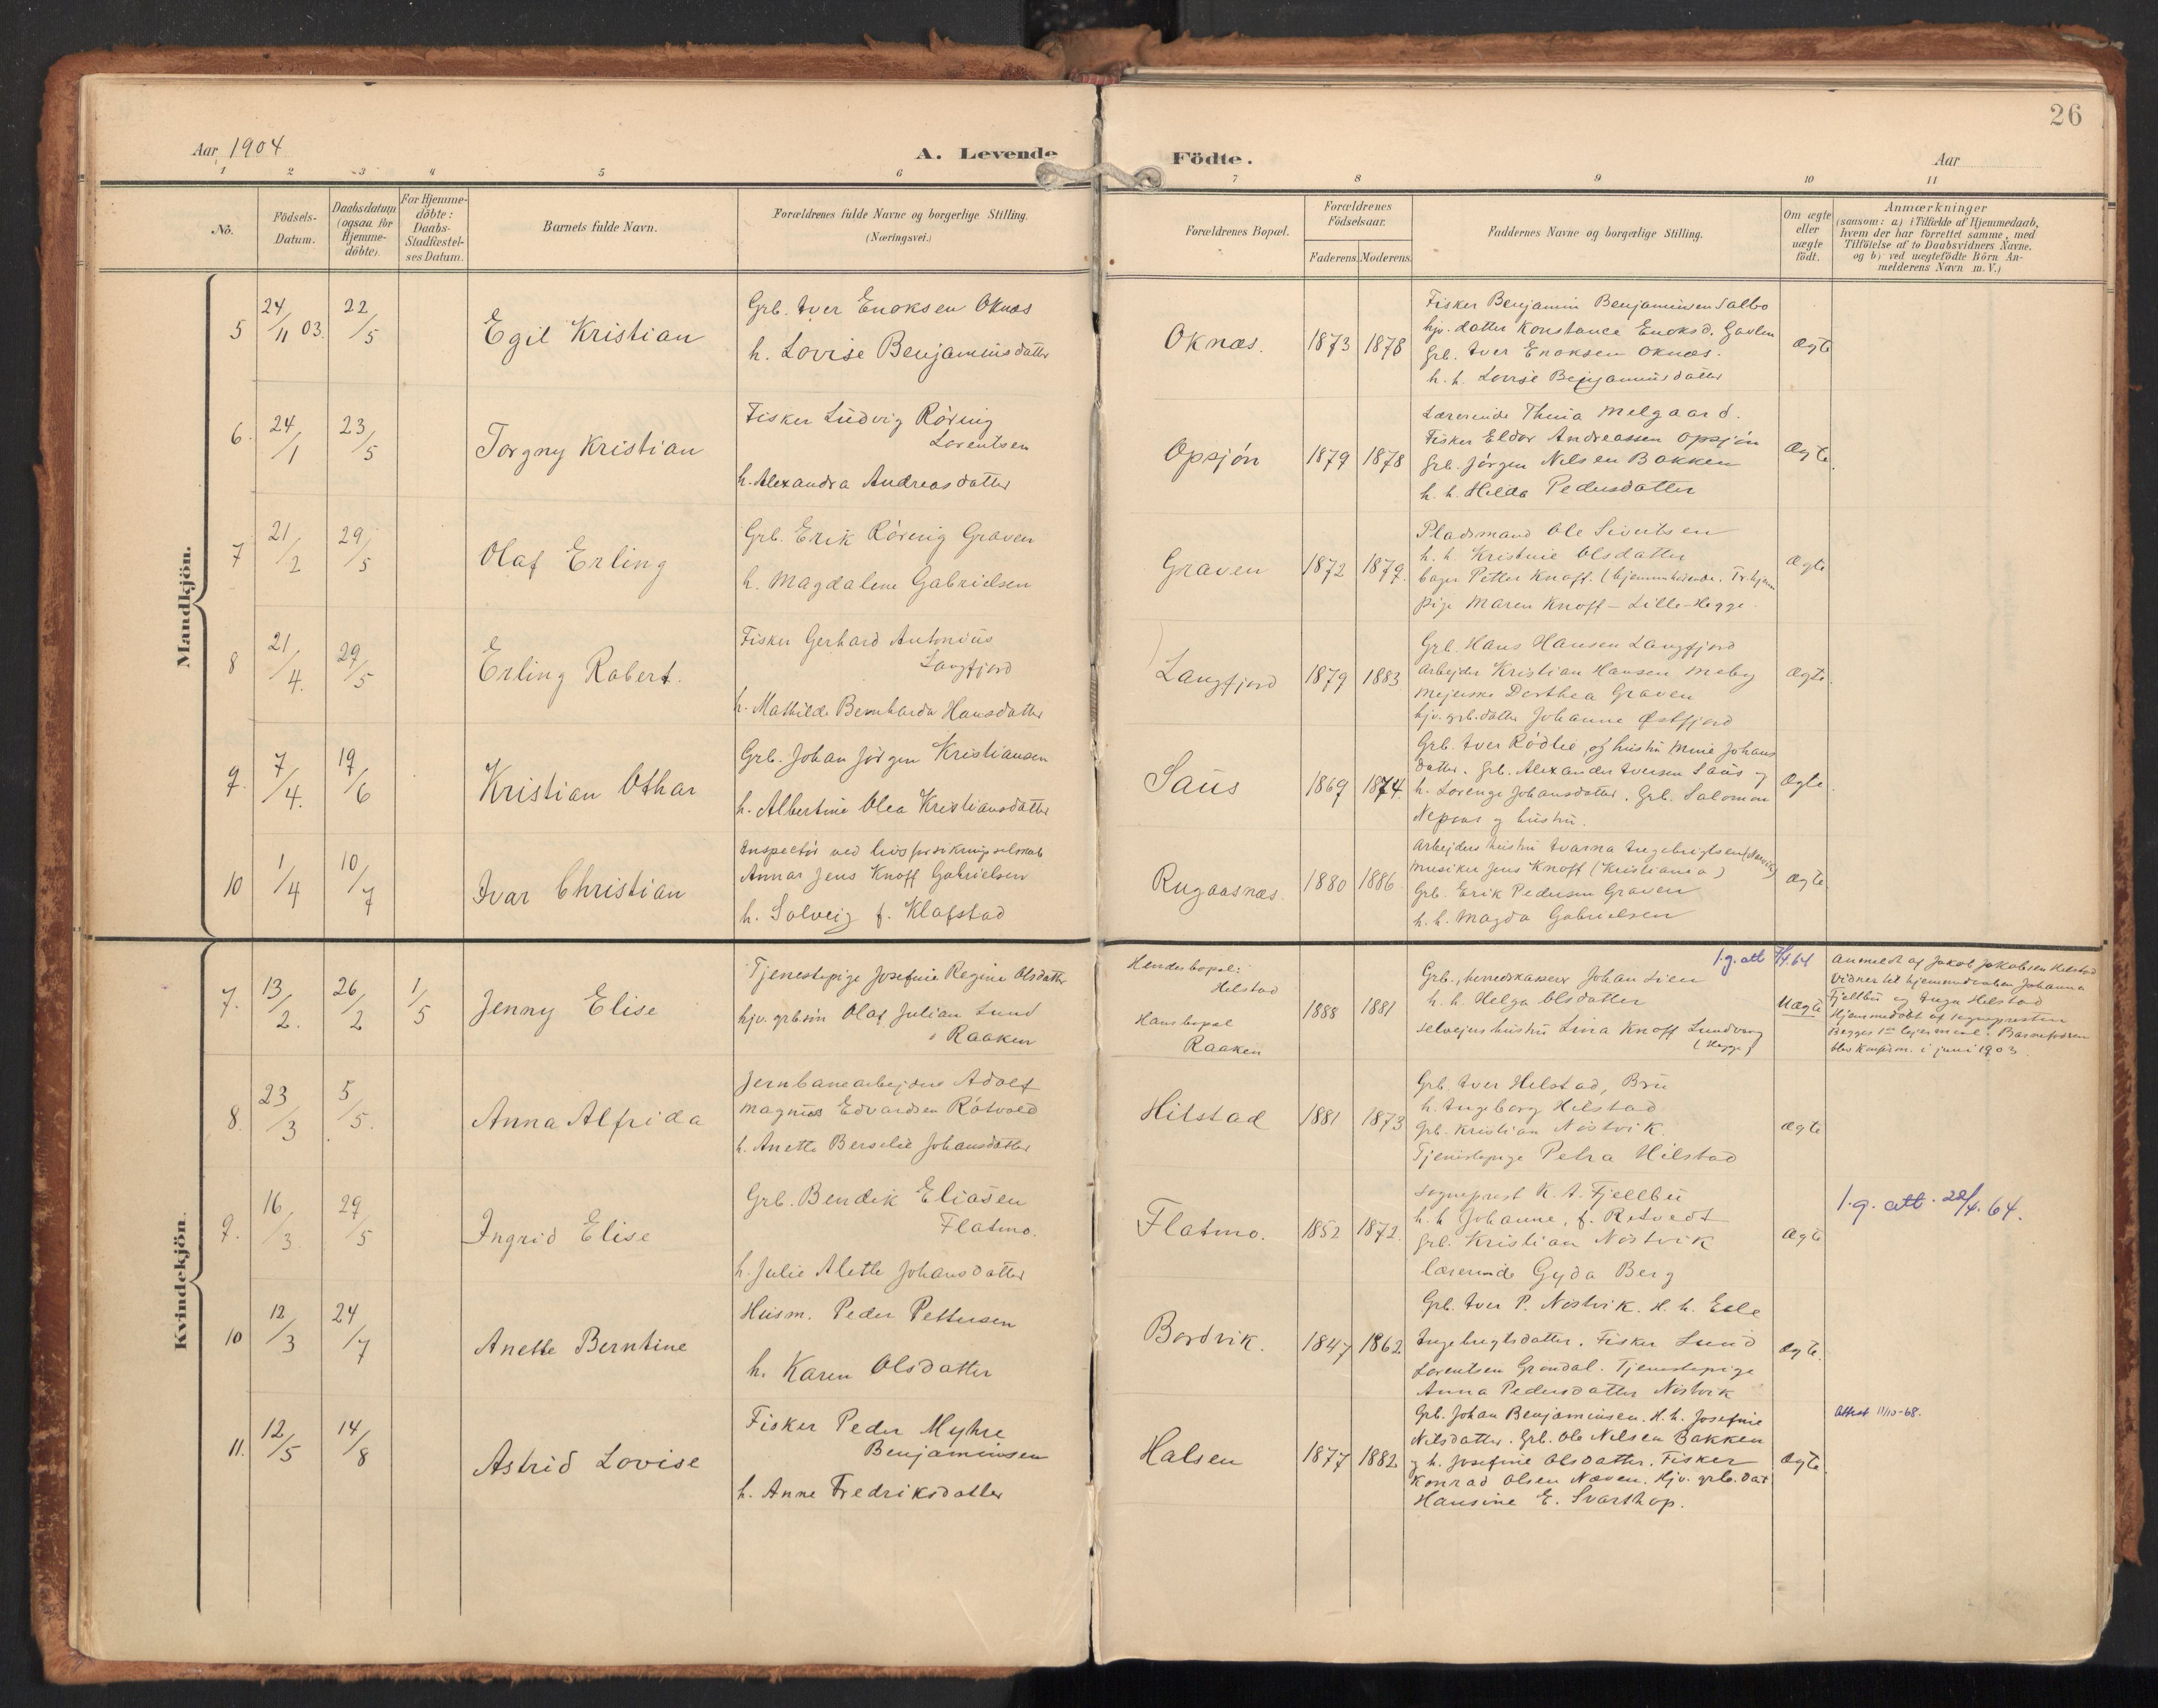 26
Aar 1904
A. Levende Födte.
Aar
1 2 3 4 5 6 7 8 9 10 11
No.
Födsels-Datum.
Daabsdatum (ogsaa for Hjemme-döbte).
For Hjemme-döbte: Daabs-Stadfæstel-ses Datum.
Barnets fulde Navn.
Forældrenes fulde Navne og borgerlige Stilling.
(Næringsvei.)
Forældrenes Bopæl.
Forældrenes Födselsaar.
Faderens. Moderens.
Faddernes Navne og borgerlige Stilling.
Om ægte eller uægte födt.
Anmærkninger
(saasom: a) i Tilfælde af Hjemmedaab,
hvem der har forrettet samme, med
Tilföielse af to Daabsvidners Navne.
og b) ved uægtefödte Börn An-
melderens Navn m. V.)
Mandkjön.
5 24/11 03. 22/5 Egil Kristian
Grb. Iver Enoksen Oknæs
h. Lovise Benjaminsdatter
Oknæs. 1873 1878
Fisker Benjamin Benjaminsen Salbo
hjv. datter Konstance Enoksd. Gavlen
Grb. Iver Enoksen Oknæs.
h. h. Lovise Benjaminsdatter
ægte
6. 24/1 23/5 Torgny Kristian
Fisker Ludvig Röring
Lorentsen
h. Alexandra Andreasdatter
Opsjón 1879 1878
Lærerinde Thina Melgaard.
Fisker Eldor Andreassen Opsjón
Grb. Jörgen Nilsen Bakken
h. h. Hilda Pedersdatter
Ægte.
7 21/2 29/5 Olaf Erling
Grb. Erik Röring Graven
h. Magdalene Gabrielsen
Graven 1872 1879.
Pladsmand Ole Sivertsen
h. h. Kristine Olsdatter
bager Petter Knoff.
pige Maren Knoff - Lille-Hegge.
Ægte
8 21/4. 29/5 Erling Robert.
Fisker Gerhard Antonius
Langfjord
h. Mathilde Bernharda Hansdatter
Langfjord 1879 1883
Grb. Hans Hansen Langfjord
Arbejder Kristian Hansen Meby
Mejerske Dorthea Graven
hjv. grb. datter Johanne Østfjord
Ægte.
9. 7/4. 19/6 Kristian Othar
Grb. Johan Jörgen Kristiansen
h. Albertine Olea Kristiansdatter
Saus 1869 1874.
Grb. Iver Rödlie, og hustru Mine Johans
datter. Grb. Alexander Iversen Saus og
h. Lorense Johansdatter. Grb. Salomon
Nepaas og hustru.
Ægte.
10 1/4 10/7 Ivar Christian
Inspectör ved livsforsikringsselskab
Annar Jens Knoff Gabrielsen
h. Solveig f. Klafstad
Rugaasnæs. 1880 1886
Arbejders hustru Ivarna Ingebrigtsen (Narvik)
Musiker Jens Knoff (Kristiania)
Grb. Erik Pedersen Graven
h. h. Magda Gabrielsen
ægte
Kvindekjön.
7. 13/2. 26/2 1/5 Jenny Elise
Tjenestepige Josefine Regine Olsdatter
hjv. grb.sön Olaf Julian Lund
Raaken
Hendes bopæl:
Helstad
Hans bopæl
Raaken
1888 1881
Grb., herredskasserer Johan Lien
h. h. Helga Olsdatter
selvejers hustru Lina Knoff Lundvang
(Hegge)
Uægte
l.g. att 7/4.64
Anmeldt af Jakob Jakobsen Helstad
Vidner til hjemmedaaben Johanna
Fjellbu og Inga Helstad
Hjemmedöbt af sognepresten
Begges 1ste lejermaal. Barnefaderen
blev Konfirm. i juni 1903.
8. 23/3 5/5. Anna Alfrida
Jernbanearbejder Adolf
Magnus Edvardsen Rötvold
h. Anette Berselie Johansdatter
Hilstad 1881 1873
Grb. Iver Helstad, Bru
h. Ingeborg Helstad
Grb. Kristian Nöstvik.
Tjenestepige Petra Hilstad
Ægte
9. 16/3 29/5 Ingrid Elise
Grb. Bendik Eliasen
Flatmo.
h. Julie Alette Johansdatter
Flatmo. 1852 1872.
Sogneprest K. A. Fjellbu
h. h. Johanne, f. Retvedt
Grb. Kristian Nöstvik
Lærerinde Gyda Berg
Ægte
l.g. att. 28/4.64.
10 12/3 24/7 Anette Berntine
Husm. Peder Pettersen
h. Karen Olsdatter
Bordvik. 1847 1862
Grb. Iver P. Nöstvik. H. h. Else
Ingebrigtsdatter. Fisker Lund
Lorentsen Grondal. Tjenestepige
Anna Pedersdatter Nöstvik
Ægte.
11. 12/5 14/8 Astrid Lovise
Fisker Peder Myhre
Benjaminsen
h. Anne Fredriksdatter
Halsen 1877 1882
Grb. Johan Benjaminsen. H. h. Josefine
Nilsdatter. Grb. Ole Nilsen Bakken
og h. Josefine Olsdatter. Fisker
Konrad Olsen Næven. Hjv. grb. dat
Hansine E. Svarthop.
Ægte.
Attest 11/10-68.